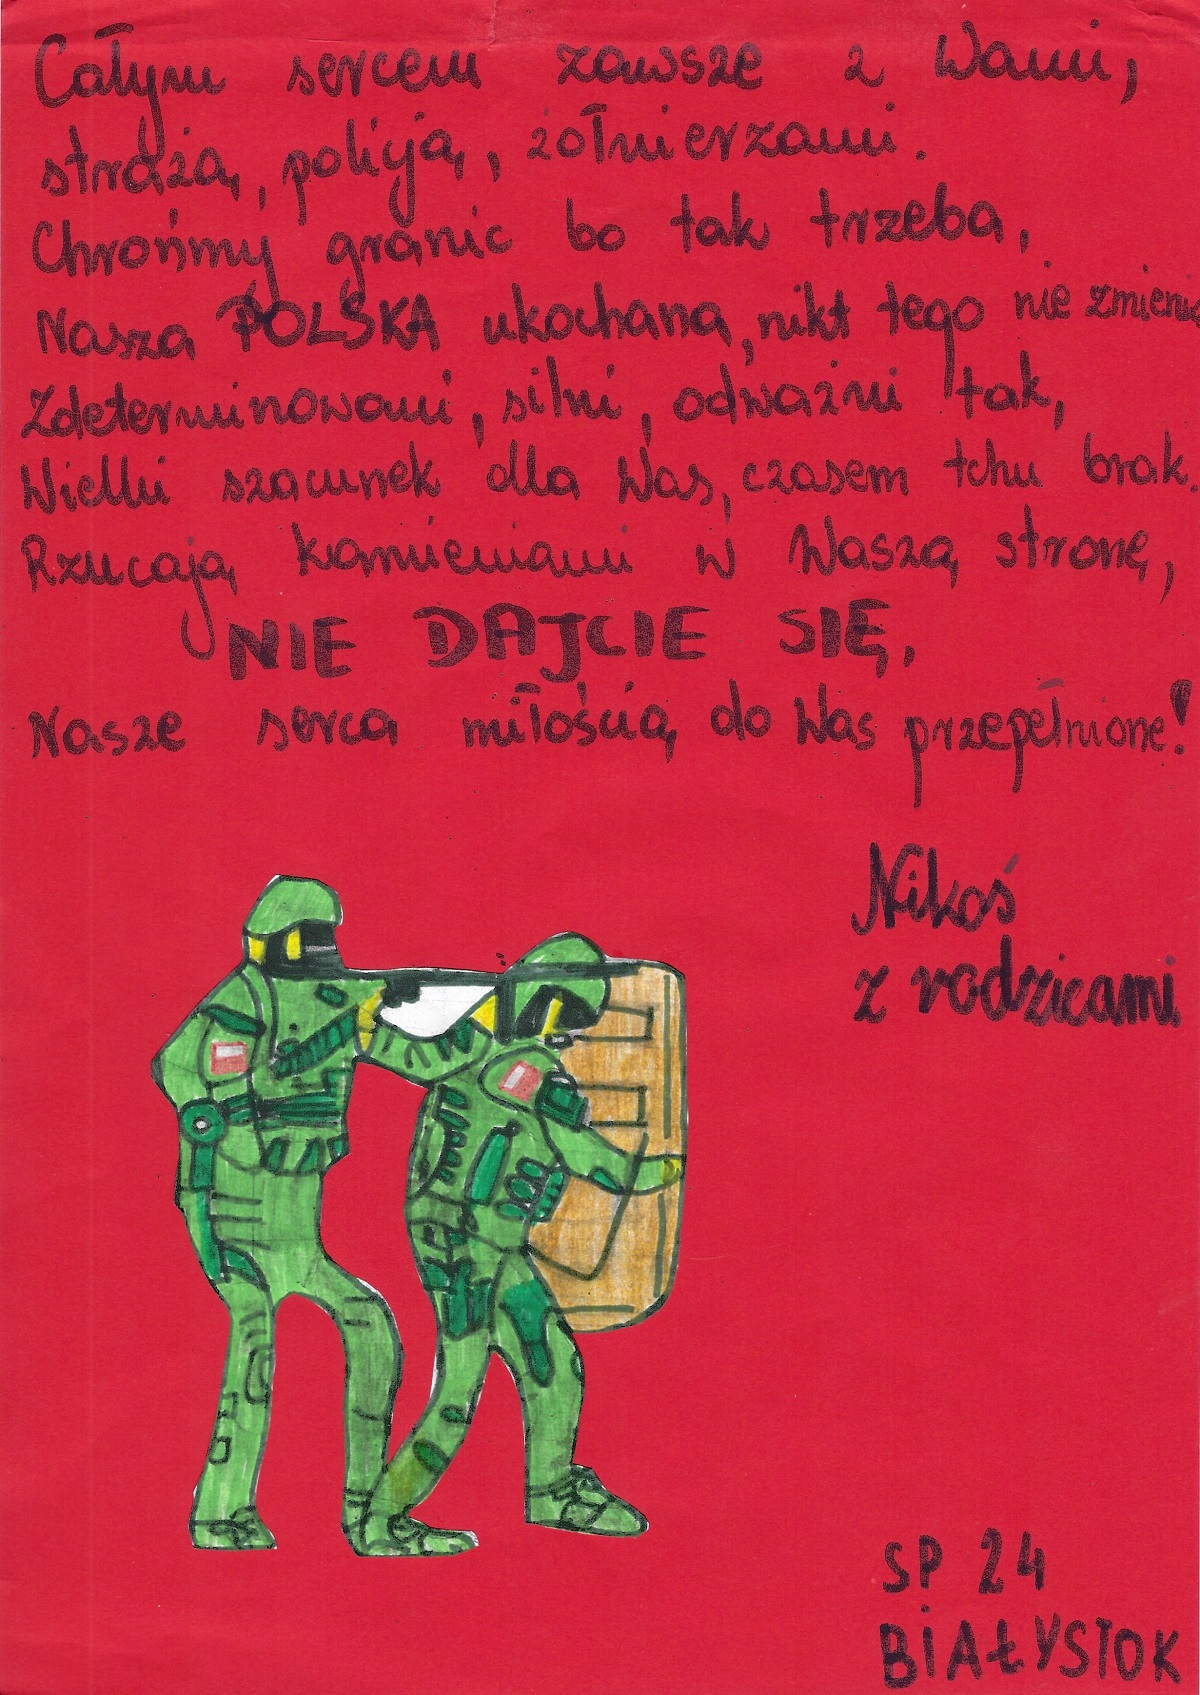 Całym sercem zawsze z Wami,
strażą, policją, żołnierzami.
Chrońmy granic bo tak trzeba,
Nasza POLSKA ukochana, nikt tego nie zmienia
Zdeterminowani, silni, odważni tak,
Wielki szacunek dla Was, czasem tchu brak.
Rzucają kamieniami w Waszą stronę,
NIE DAJCIE SIĘ,
Nasze serca miłością do Was przepełnione!
Nikoś
z rodzicami
SP 24
BIAŁYSTOK